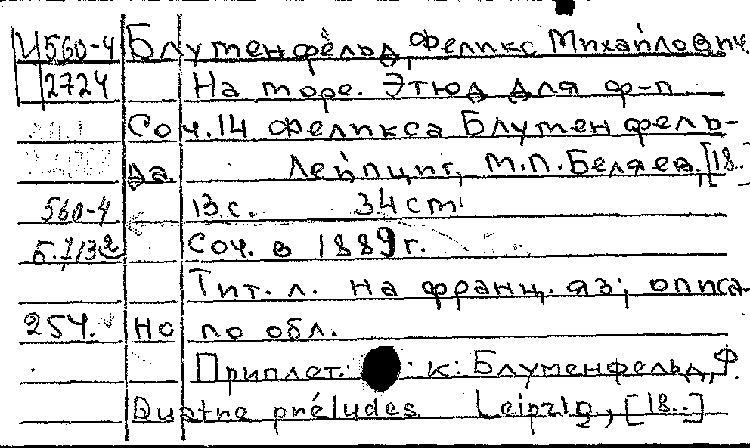 Ц560-4 Блуменфельд, Феликс Михайлович.
2724 На море. Этюд для ф-п.
Соч. 14 Феликса Блуменфель-
да. Лейпциг, М.П. Беляев, [18..]
560-4 13 с. 34 cm
Соч. в 1889 г.
Тит. л. на франц. яз; описа-
254. но по обл.
Приплет. к: Блуменфельд, Ф.
Quatre préludes Leipzig, [18..]